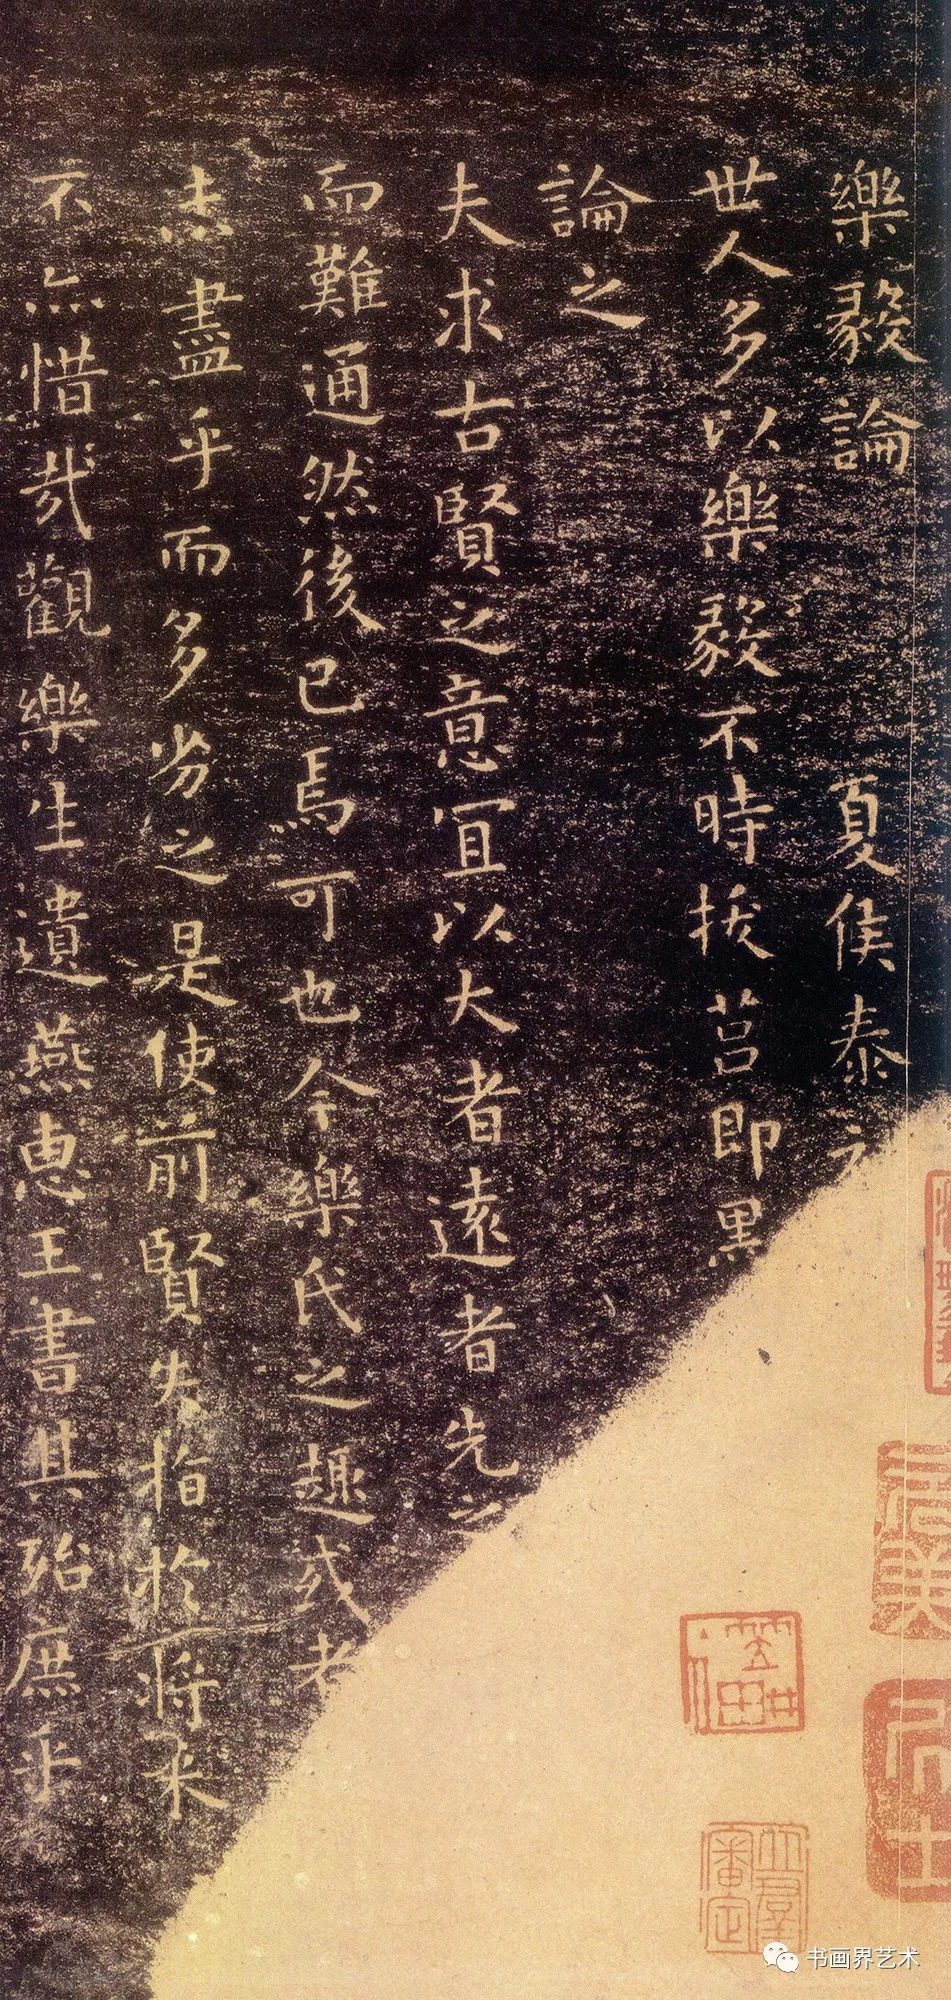 樂毅論　夏侯泰
世人多以樂毅不時拔莒即黑
論之
夫求古賢之意宜以大者遠者先之
而難通然後已焉可也今樂氏之趣或者
未盡乎而多劣之是使前賢失指於將來
不亦惜哉觀樂生遺燕惠王書其殆庶乎
书画界艺术